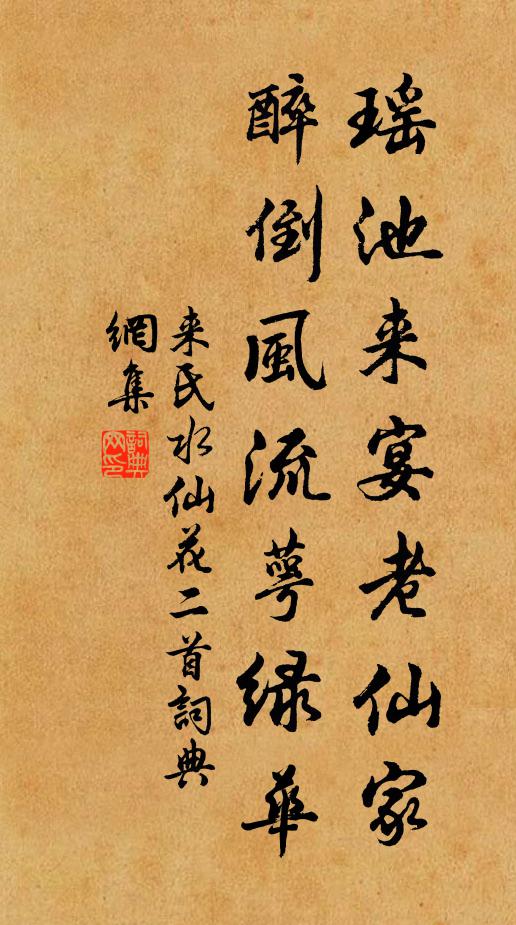 瑶池来宴老仙家
醉倒風流萼绿華
来氏水仙花二首詞典
網集
詞典
网印